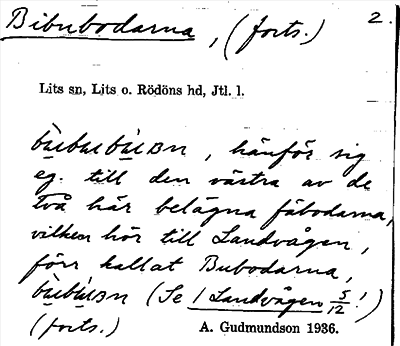 Bibubodarna, (forts.) 2.
Lits sn, Lits o. Rödöns hd, Jtl. l.
hänför sig
eg. till den västra av de
två här belägna fäbodarna,
vilken hör till Landvågen,
förr kallat Bubodarna,
(Se 1 Landvågen 5/12!)
(forts.) A. Gudmundson 1936.